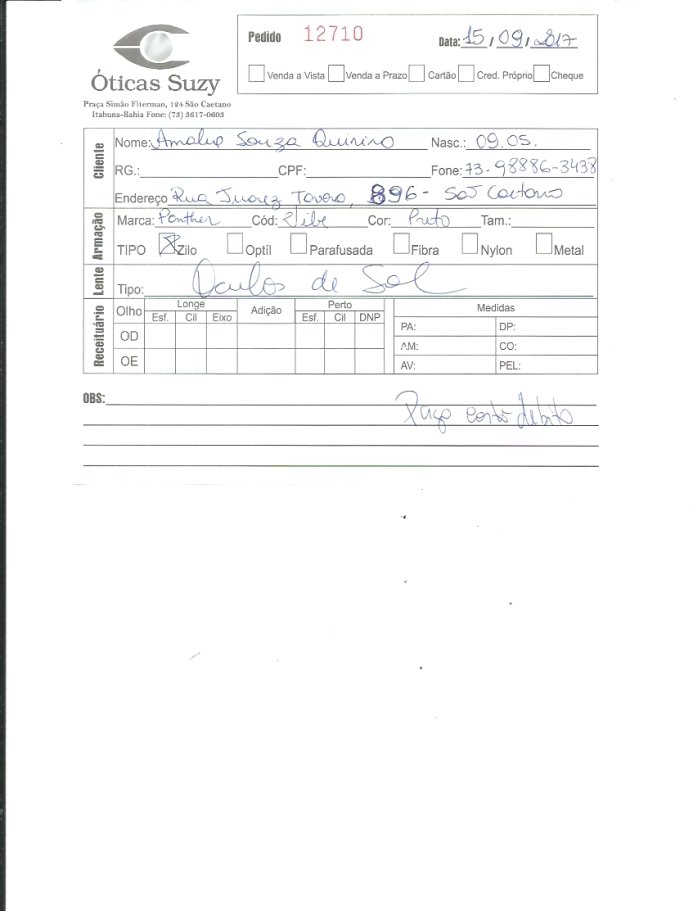 Pedido 12710 Data: 15/09/2017
Venda a Vista Venda a Prazo Cartão Cred. Próprio Cheque
Óticas Suzy
Praça Simão Fiterman, 124 São Caetano
Itabuna-Bahia Fone: (73) 3617-0603
Cliente
Nome: Souza Quirino Nasc.: 09.05.
RG.: CPF: Fone: 73.98886-3438
Endereço Rua Juarez Tavora, 896 - São Caetano
Armação
Marca: Panther Cód: Cor: Preto Tam.:
TIPO Zilo Optíl Parafusada Fibra Nylon Metal
Lente
Tipo: Oculos de Sol
Receituário
Olho Longe Adição Perto Medidas
Esf. Cil Eixo Esf. Cil DNP
OD
OE
PA: DP:
AM: CO:
AV: PEL:
OBS:
Pago cartão debito